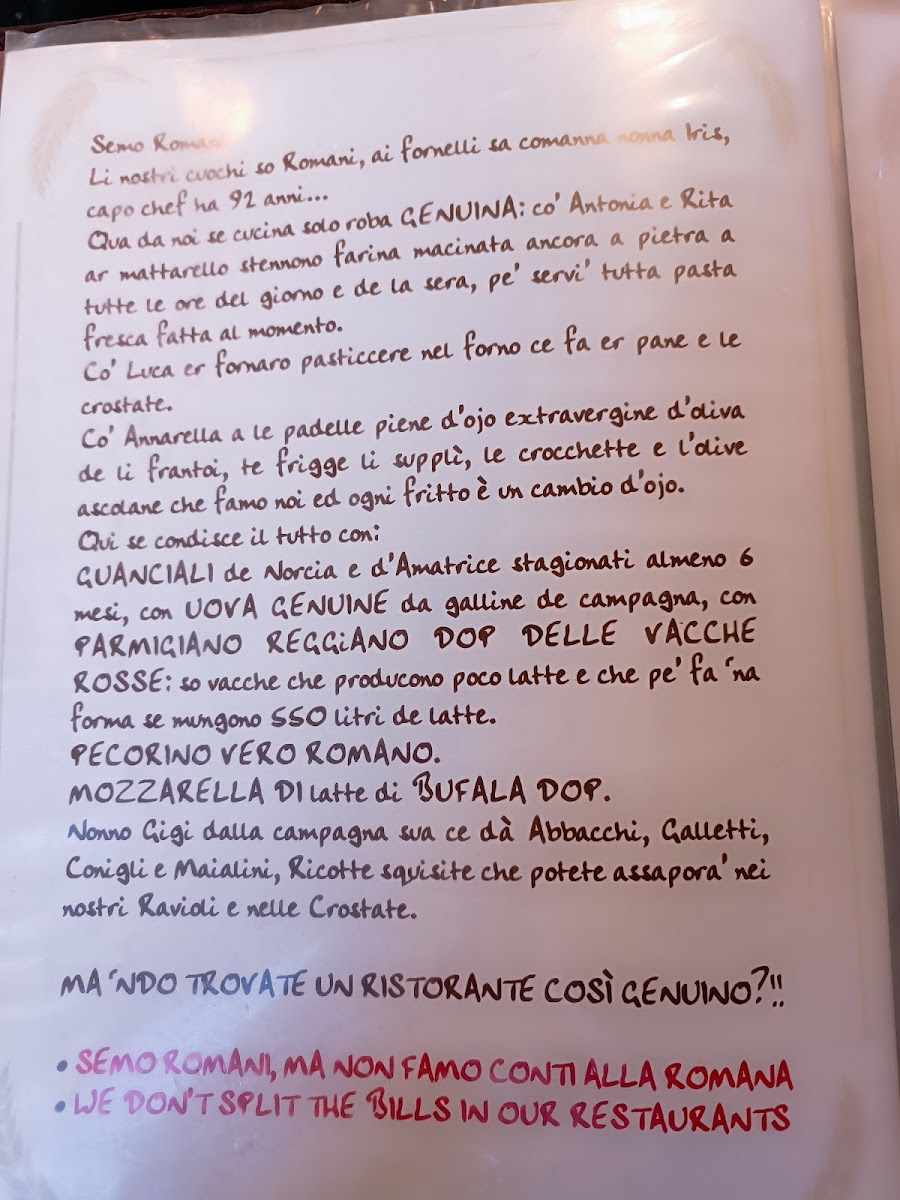 Semo Romani
Li nostri cuochi so Romani, ai fornelli sa comanna nonna Iris,
capo chef ha 92 anni...
Qua da noi se cucina solo roba GENUINA: co' Antonia e Rita
ar mattarello stennono farina macinata ancora a pietra a
tutte le ore del giorno e de la sera, pe' servi' tutta pasta
fresca fatta al momento.
Co' Luca er fornaro pasticcere nel forno ce fa er pane e le
crostate.
Co' Annarella a le padelle piene d'ojo extravergine d'oliva
de li frantoi, te frigge li supplì, le crocchette e l'olive
ascolane che famo noi ed ogni fritto è un cambio d'ojo.
Qui se condisce il tutto con:
GUANCIALI de Norcia e d'Amatrice stagionati almeno 6
mesi, con UOVA GENUINE da galline de campagna, con
PARMIGIANO REGGiANO DOP DELLE VACCHE
ROSSE: so vacche che producono poco latte e che pe' fa 'na
forma se mungono 550 litri de latte.
PECORINO VERO ROMANO.
MOZZARELLA DI latte di BUFALA DOP.
Nonno Gigi dalla campagna sua ce dà Abbacchi, Galletti,
Conigli e Maialini, Ricotte squisite che potete assapora' nei
nostri Ravioli e nelle Crostate.
MA 'NDO TROVATE UN RISTORANTE COSÌ GENUINO?!!
• SEMO ROMANI, MA NON FAMO CONTI ALLA ROMANA
• WE DON'T SPLIT THE BILLS IN OUR RESTAURANTS